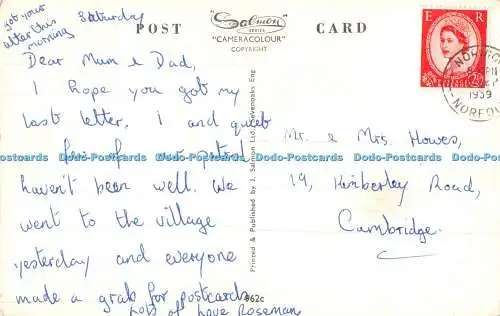 got your
letter this
morning
Saturday
POST CARD
Salmon
SERIES
"CAMERACOLOUR"
COPYRIGHT
E R
NORWICH
1959
NORFOLK
Dear Mum & Dad,
I hope you got my
last letter. I and quite
few of our patrol
haven't been well. We
went to the village
yesterday and everyone
made a grab for postcards
Lots of love Rosemary
Mr. & Mrs Howes,
19, Kimberley Road,
Cambridge.
Printed & Published by J. Salmon Ltd., Sevenoaks Eng.
962c
Dodo-Postcards Dodo-Postcards Dodo-Postcards Dodo-Postcards Dodo-Postcards